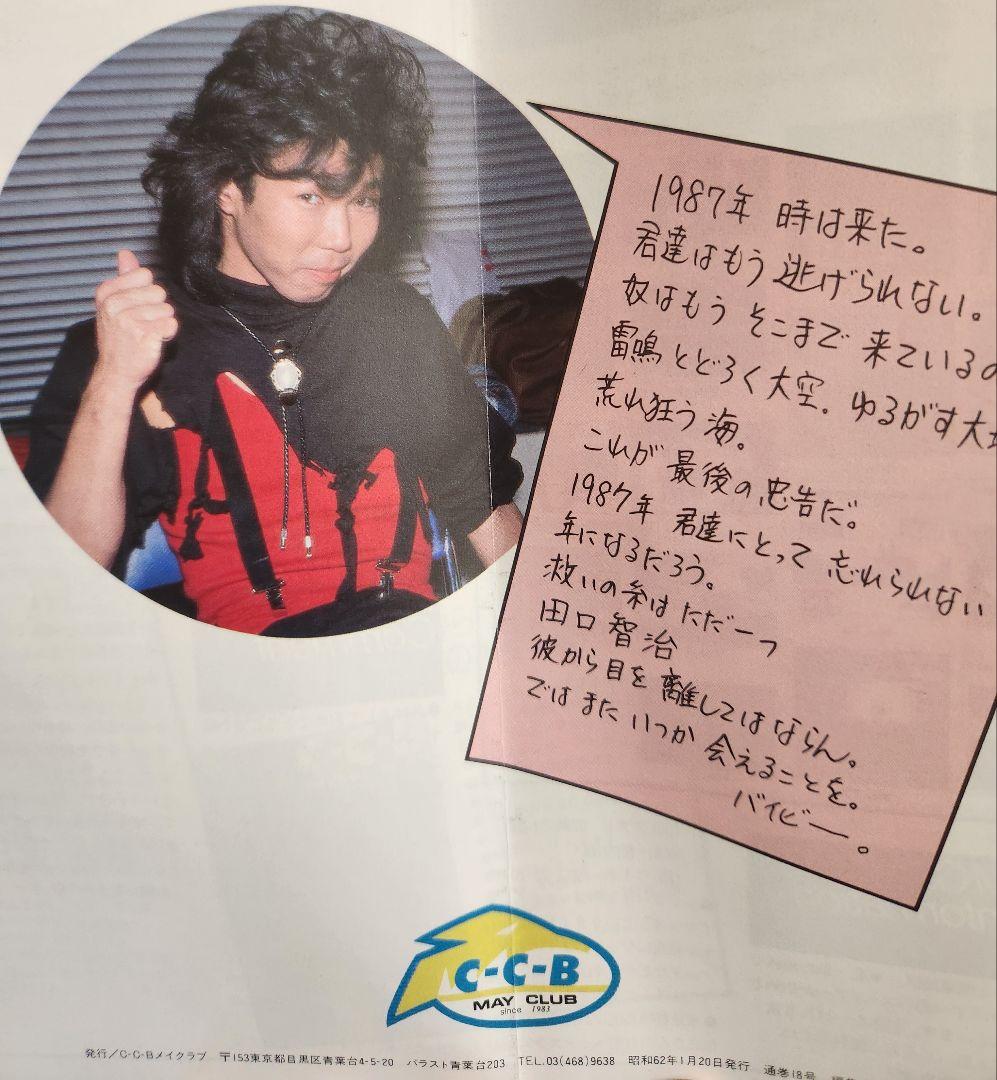 1987年 時は来た。
君達はもう逃げられない。
奴はもう そこまで 来ているの
雷鳴とどろく大空。ゆるがす大
荒れ狂う海。
これが 最後の忠告だ。
1987年 君達にとって 忘れられない
年になるだろう。
救いの糸は ただ一つ
田口智治
彼から目を離してはならん。
では また いつか 会えることを。
バイビー。
C-C-B
MAY CLUB
since 1983
発行/C-C-Bメイクラブ 〒153東京都目黒区青葉台4-5-20 パラスト青葉台203 TEL.03(468)9638 昭和62年1月20日発行 通巻18号